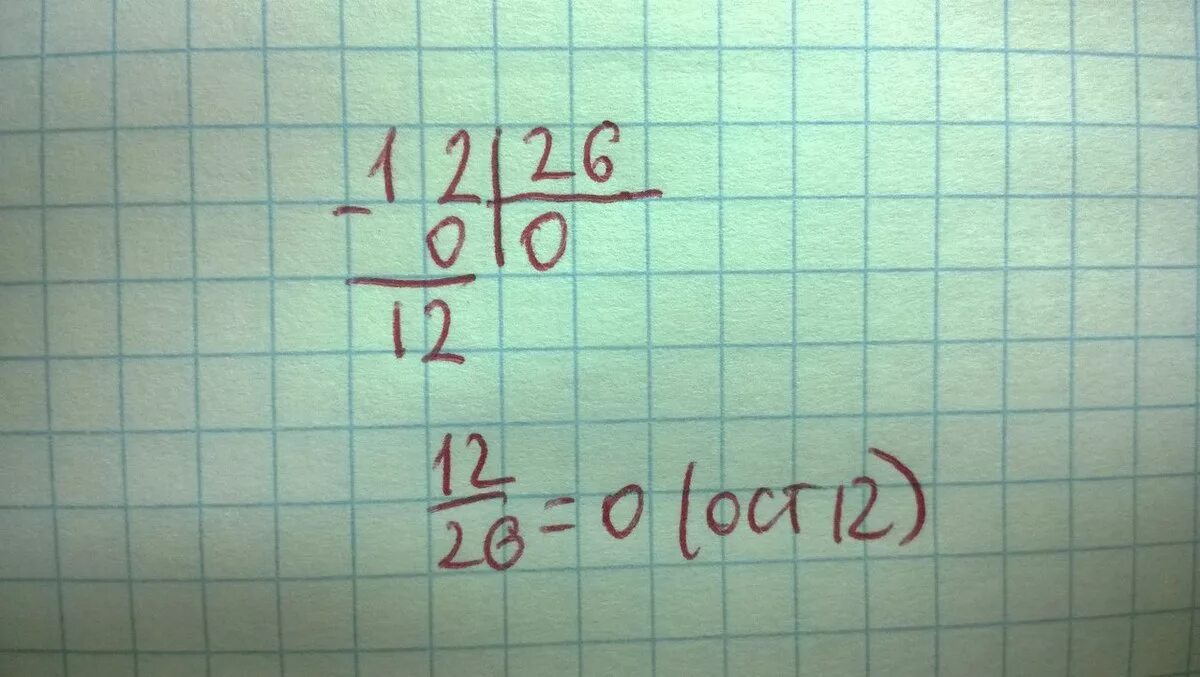 12 26
- 0 0
12
12/26 = 0 (ост 12)